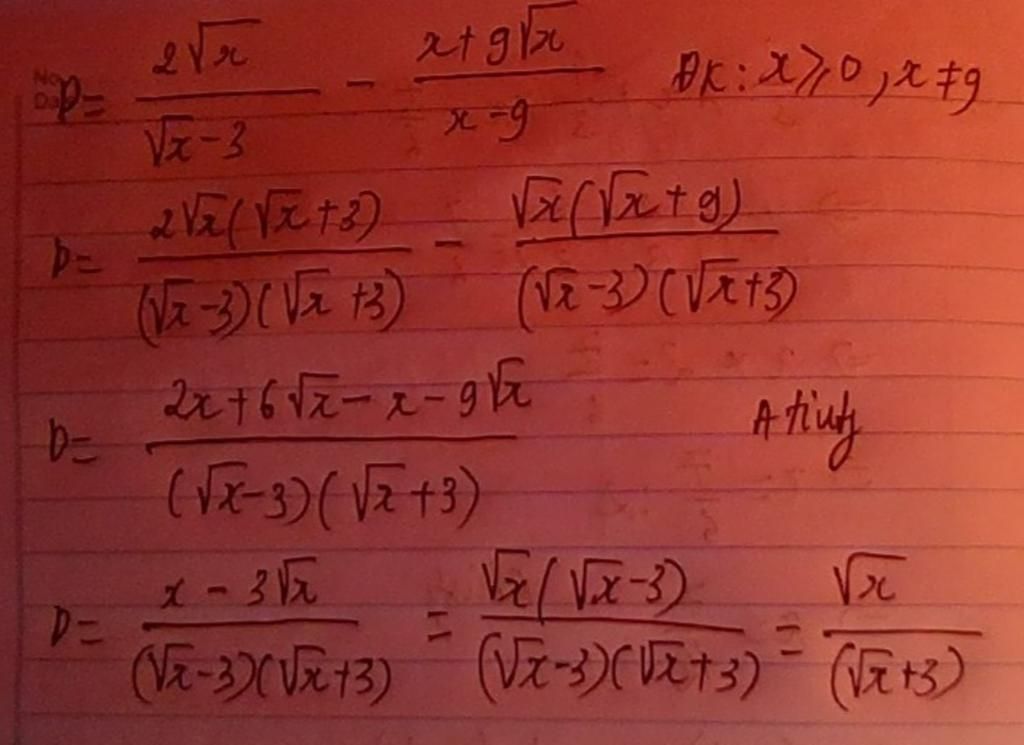 D = \frac{2\sqrt{x}}{\sqrt{x}-3} - \frac{x+9\sqrt{x}}{x-9} ĐK: x ⩾ 0, x ≠ 9
D = \frac{2\sqrt{x}(\sqrt{x}+3)}{(\sqrt{x}-3)(\sqrt{x}+3)} - \frac{\sqrt{x}(\sqrt{x}+9)}{(\sqrt{x}-3)(\sqrt{x}+3)}
D = \frac{2x+6\sqrt{x}-x-9\sqrt{x}}{(\sqrt{x}-3)(\sqrt{x}+3)}
D = \frac{x-3\sqrt{x}}{(\sqrt{x}-3)(\sqrt{x}+3)} = \frac{\sqrt{x}(\sqrt{x}-3)}{(\sqrt{x}-3)(\sqrt{x}+3)} = \frac{\sqrt{x}}{(\sqrt{x}+3)}